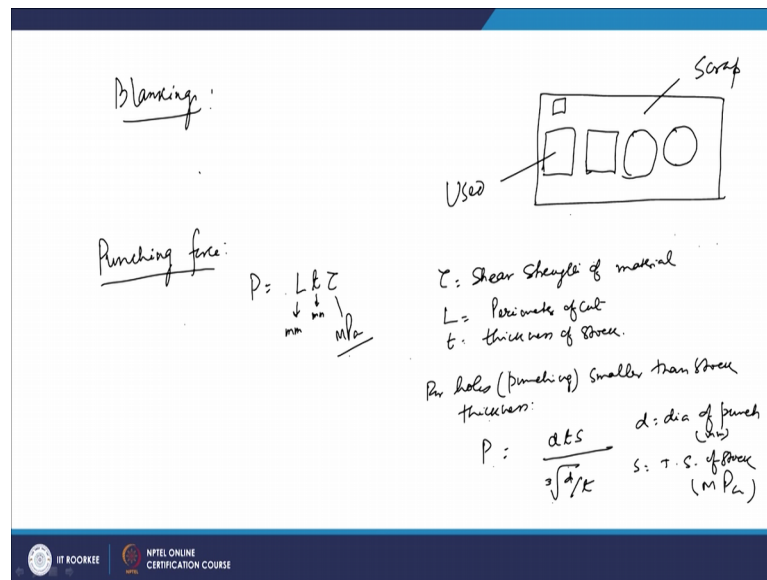 Blanking :
Scrap
Used
Punching force:
P = L t τ
mm mm MPa
τ : Shear Strength of material
L = Perimeter of cut
t : thickness of stock.
For holes (punching) smaller than stock
thickness:
P : dtS / ∛d/t
d : dia of punch
(mm)
S : T. S. of stock
(MPa)
IIT ROORKEE
NPTEL ONLINE
CERTIFICATION COURSE